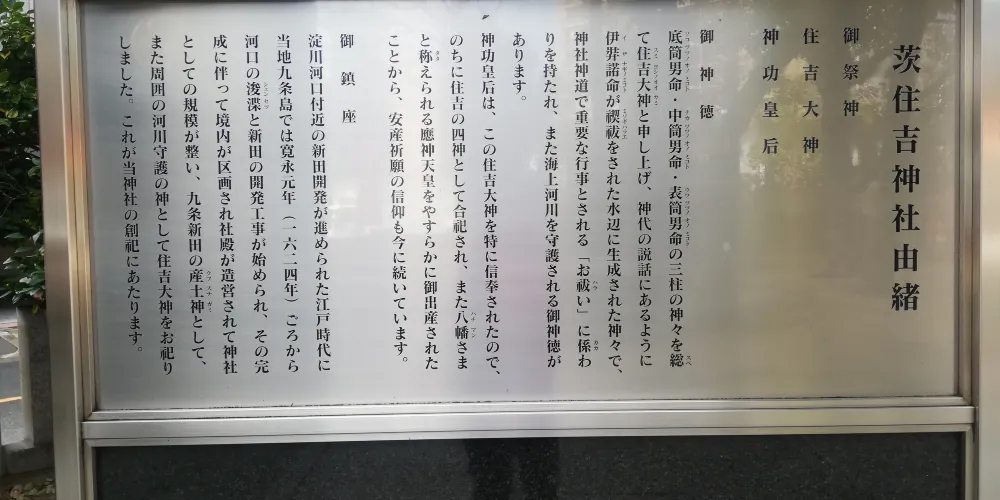 茨住吉神社由緒
御祭神
住吉大神
神功皇后
御神德
底筒男命・中筒男命・表筒男命の三柱の神々を総
て住吉大神と申し上げ、神代の説話にあるように
伊弉諾命が禊祓をされた水辺に生成された神々で、
神社神道で重要な行事とされる「お祓い」に係わ
りを持たれ、また海上河川を守護される御神德が
あります。
神功皇后は、この住吉大神を特に信奉されたので、
のちに住吉の四神として合祀され、また八幡さま
と称えられる應神天皇をやすらかに御出産された
ことから、安産祈願の信仰も今に続いています。
御鎮座
淀川河口付近の新田開発が進められた江戸時代に
当地九条島では寛永元年（一六二四年）ごろから
河口の浚渫と新田の開発工事が始められ、その完
成に伴って境内が区画され社殿が造営されて神社
としての規模が整い、九条新田の産土神として、
また周囲の河川守護の神として住吉大神をお祀り
しました。これが当神社の創祀にあたります。